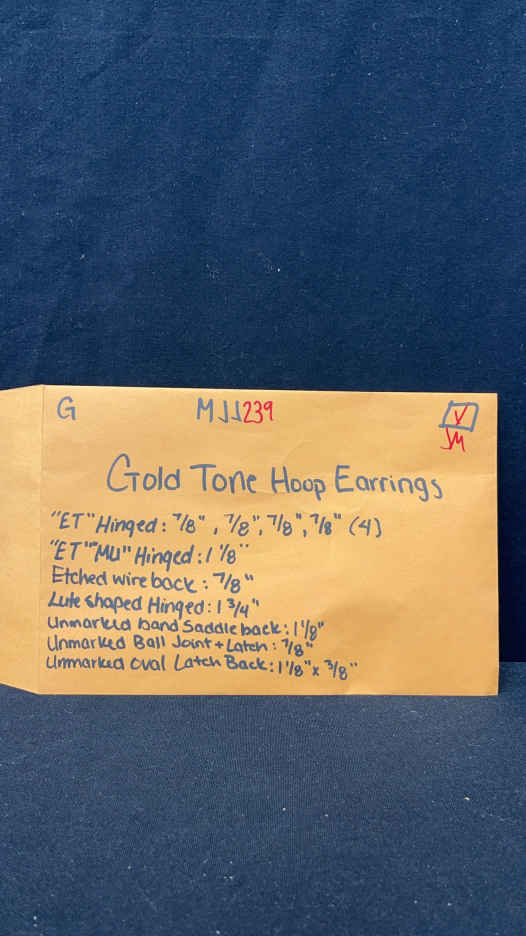 G MJJ239 V
JM
Gold Tone Hoop Earrings
"ET" Hinged: 7/8", 7/8", 7/8", 7/8" (4)
"ET" "MU" Hinged: 1 1/8"
Etched wire back: 7/8"
Lute shaped Hinged: 1 3/4"
Unmarked band Saddle back: 1 1/8"
Unmarked Ball Joint + Latch: 7/8"
Unmarked oval Latch Back: 1 1/8" x 3/8"